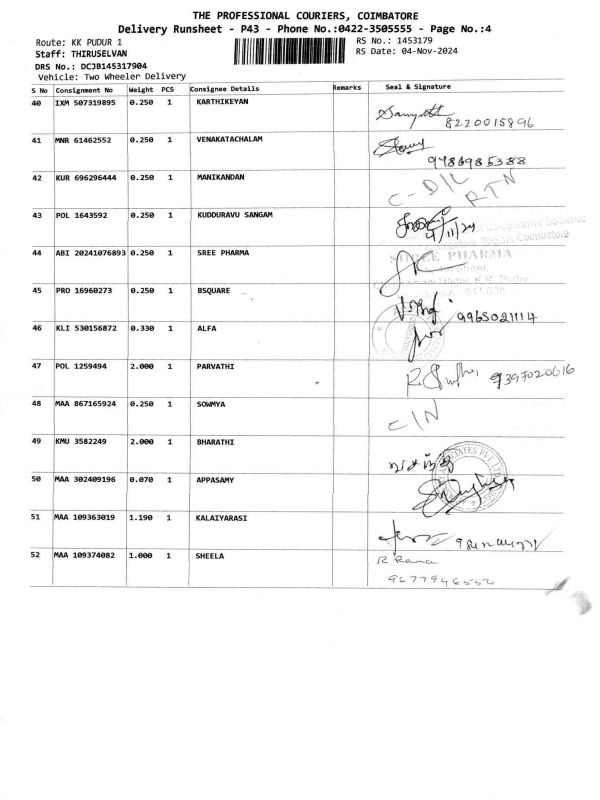 THE PROFESSIONAL COURIERS, COIMBATORE
Delivery Runsheet - P43 - Phone No.:0422-3505555 - Page No.:4
Route: KK PUDUR 1
Staff: THIRUSELVAN
DRS No.: DCJB145317904
Vehicle: Two Wheeler Delivery
RS No.: 1453179
RS Date: 04-Nov-2024
S No Consignment No Weight PCS Consignee Details Remarks Seal & Signature
40 IXM 507319895 0.250 1 KARTHIKEYAN
8220015896
41 MNR 61462552 0.250 1 VENAKATACHALAM
9786985388
42 KUR 696296444 0.250 1 MANIKANDAN
C-D/L RTN
43 POL 1643592 0.250 1 KUDDURAVU SANGAM
4/11/24
44 ABI 20241076893 0.250 1 SREE PHARMA
SHREE PHARMA
45 PRO 16960273 0.250 1 BSQUARE
9965021114
46 KLI 530156872 0.330 1 ALFA
47 POL 1259494 2.000 1 PARVATHI
9397020616
48 MAA 867165924 0.250 1 SOWMYA
C/N
49 KMU 3582249 2.000 1 BHARATHI
50 MAA 302409196 0.070 1 APPASAMY
51 MAA 109363019 1.190 1 KALAIYARASI
52 MAA 109374082 1.000 1 SHEELA
R Rana
9677946554